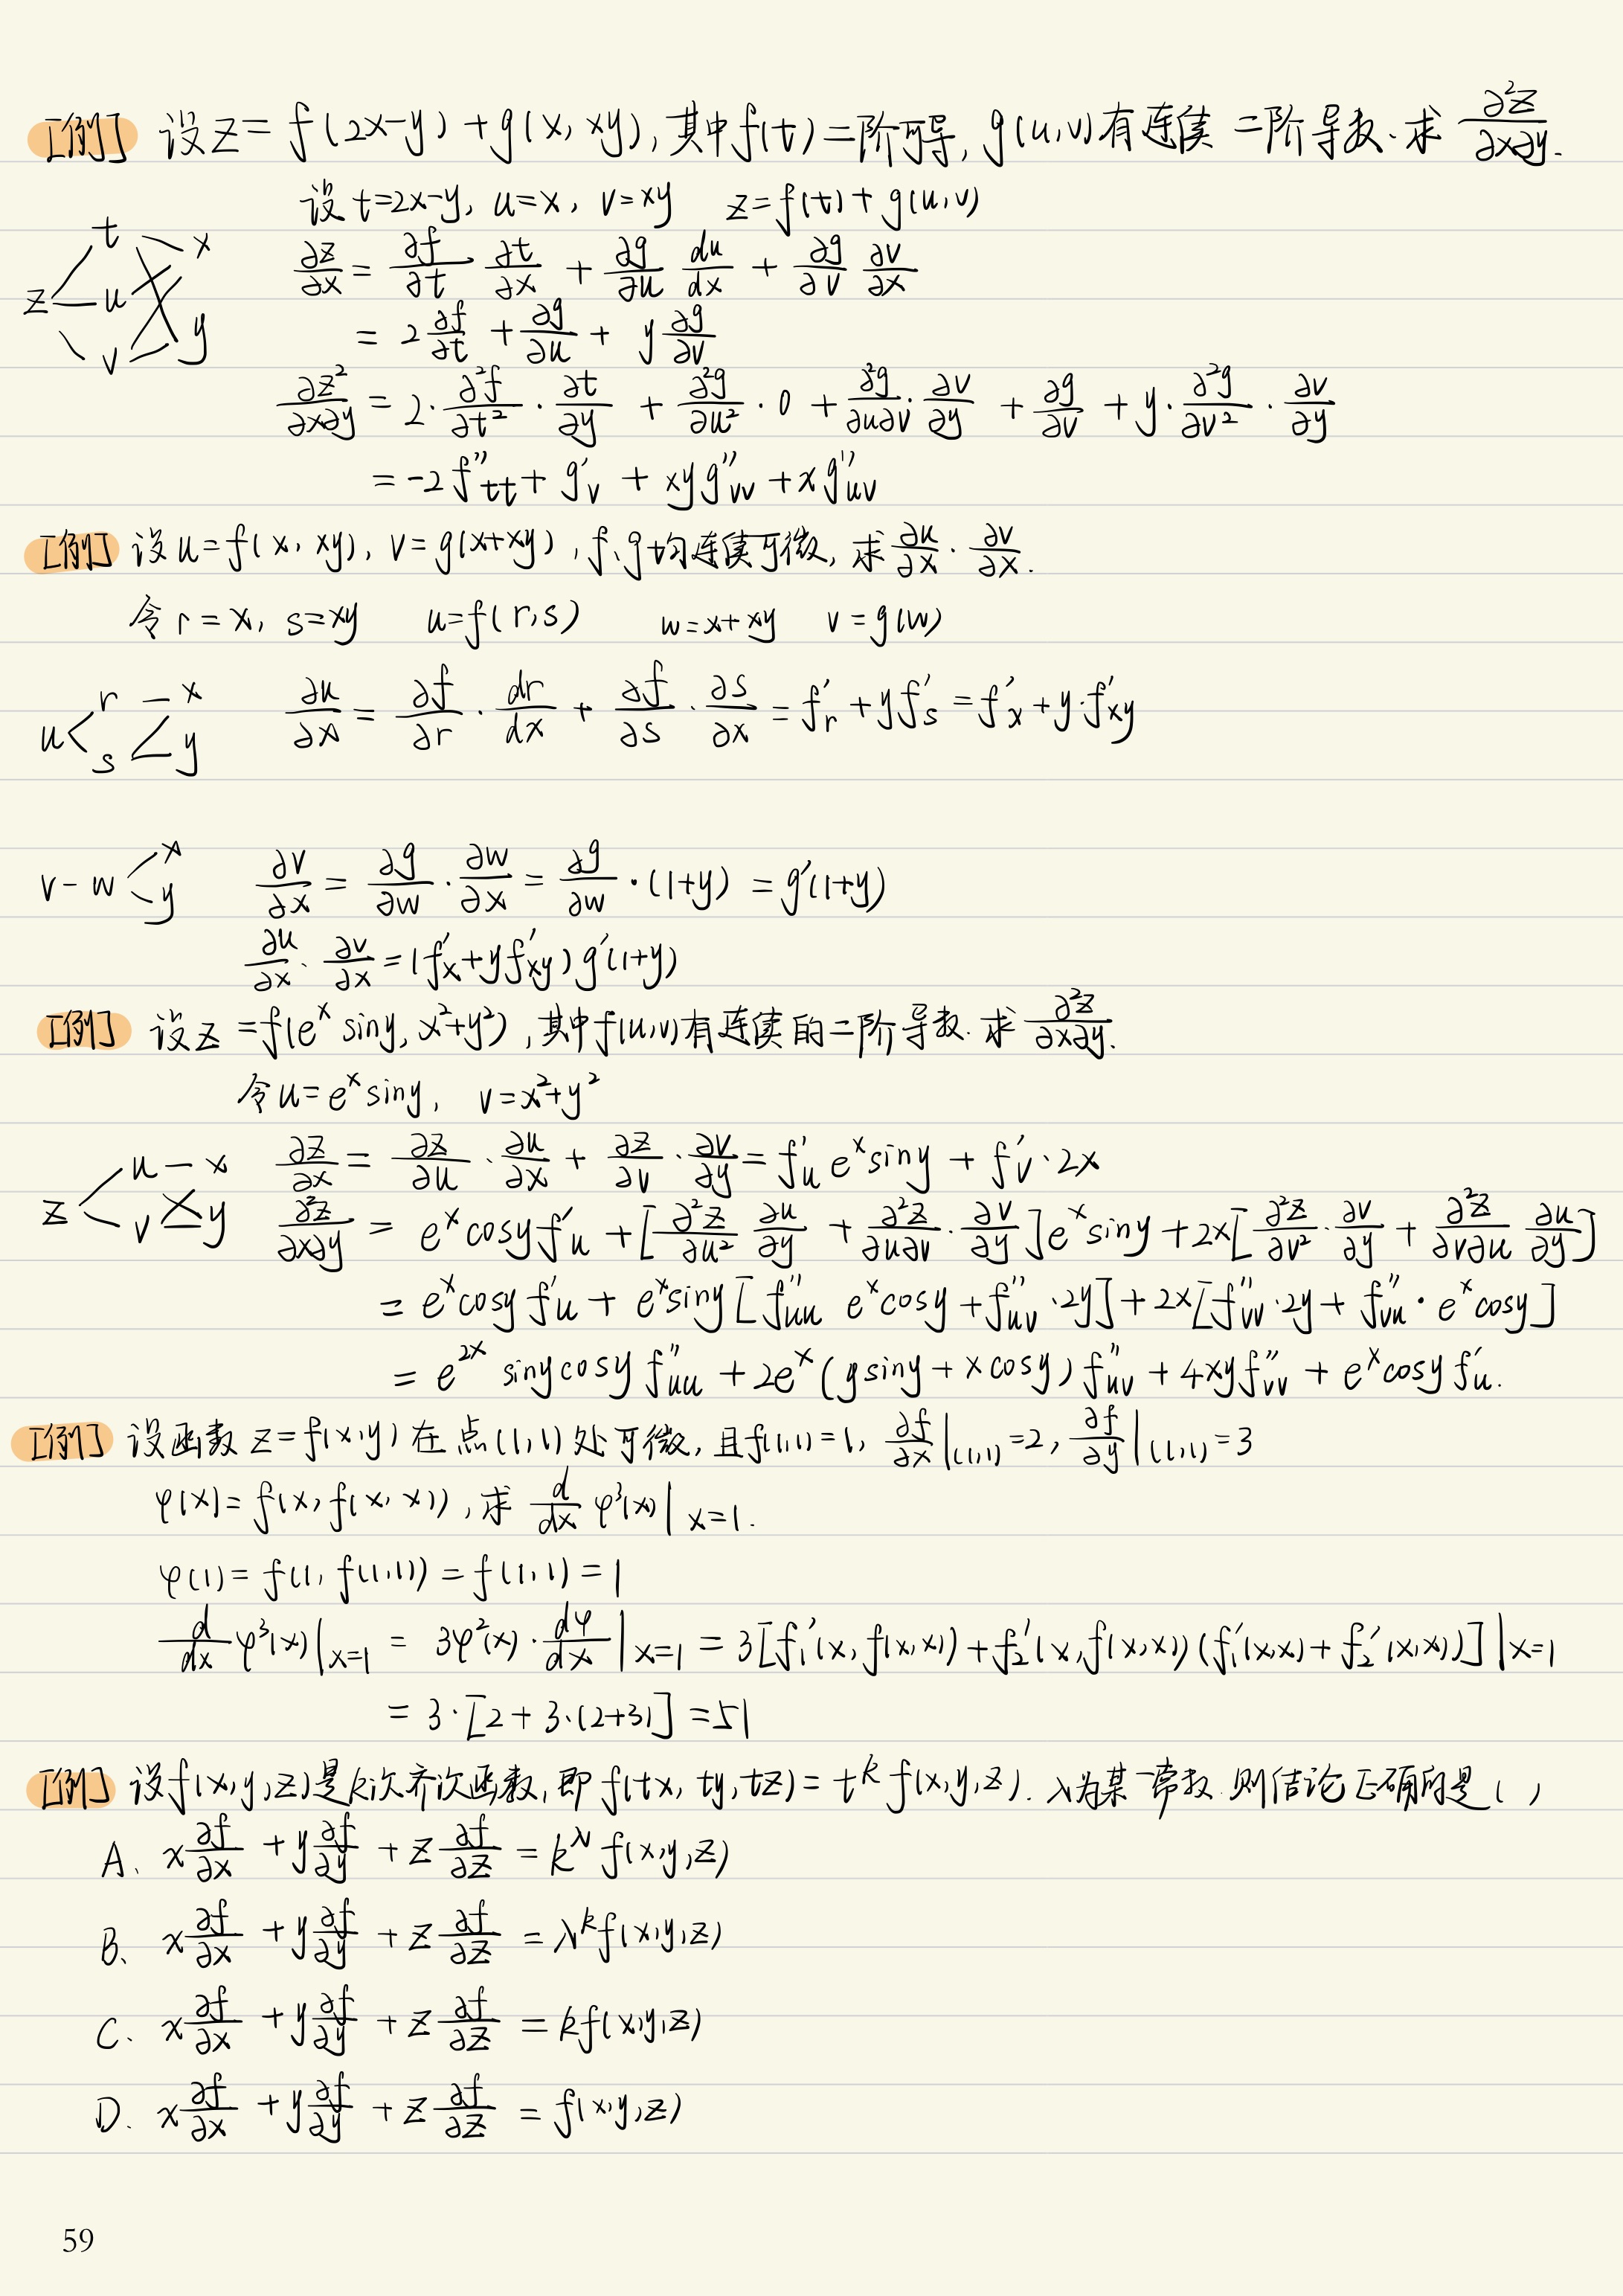 [例] 设 z = f(2x-y) + g(x, xy), 其中 f(t) 二阶可导, g(u,v) 有连续 二阶导数. 求 ∂²z/∂x∂y.
设 t=2x-y, u=x, v=xy  z=f(t)+g(u,v)
∂z/∂x = ∂f/∂t ∂t/∂x + ∂g/∂u du/dx + ∂g/∂v ∂v/∂x
z t u v x y
= 2 ∂f/∂t + ∂g/∂u + y ∂g/∂v
∂z²/∂x∂y = 2·∂²f/∂t² · ∂t/∂y + ∂²g/∂u² · 0 + ∂²g/∂u∂v · ∂v/∂y + ∂g/∂v + y·∂²g/∂v² · ∂v/∂y
= -2f''tt + g'v + xyg''vv + xg''uv
[例] 设 u=f(x, xy), v=g(x+xy), f、g均连续可微, 求 ∂u/∂x · ∂v/∂x.
令 r=x, s=xy  u=f(r,s)  w=x+xy  v=g(w)
u r s x y  ∂u/∂x = ∂f/∂r · dr/dx + ∂f/∂s · ∂s/∂x = f'r + yf's = f'x + y·f'xy
v - w x y  ∂v/∂x = ∂g/∂w · ∂w/∂x = ∂g/∂w · (1+y) = g'(1+y)
∂u/∂x · ∂v/∂x = (f'x + yf'xy) g'(1+y)
[例] 设 z = f(eˣ siny, x²+y²), 其中 f(u,v) 有连续的二阶导数. 求 ∂²z/∂x∂y.
令 u=eˣ siny, v=x²+y²
z u v x y  ∂z/∂x = ∂z/∂u · ∂u/∂x + ∂z/∂v · ∂v/∂y = f'u eˣ siny + f'v · 2x
∂²z/∂x∂y = eˣ cosy f'u + [∂²z/∂u² ∂u/∂y + ∂²z/∂u∂v · ∂v/∂y] eˣ siny + 2x[∂²z/∂v² · ∂v/∂y + ∂²z/∂v∂u ∂u/∂y]
= eˣ cosy f'u + eˣ siny [f''uu eˣ cosy + f''uv · 2y] + 2x[f''vv · 2y + f''vu · eˣ cosy]
= e²ˣ siny cosy f''uu + 2eˣ (ysiny + xcosy) f''uv + 4xyf''vv + eˣ cosy f'u.
[例] 设函数 z=f(x,y) 在点(1,1)处可微, 且f(1,1)=1, ∂f/∂x|(1,1)=2, ∂f/∂y|(1,1)=3
φ(x)=f(x, f(x,x)), 求 d/dx φ³(x)|x=1.
φ(1)=f(1, f(1,1))=f(1,1)=1
d/dx φ³(x)|x=1 = 3φ²(x)·dφ/dx|x=1 = 3[f₁'(x, f(x,x)) + f₂'(x, f(x,x))(f₁'(x,x) + f₂'(x,x))]|x=1
= 3·[2+3·(2+3)] = 51
[例] 设f(x,y,z)是k次齐次函数, 即 f(tx, ty, tz) = tᵏ f(x,y,z). λ为某一常数. 则结论正确的是 ( )
A、 x∂f/∂x + y∂f/∂y + z∂f/∂z = k^λ f(x,y,z)
B、 x∂f/∂x + y∂f/∂y + z∂f/∂z = λᵏ f(x,y,z)
C、 x∂f/∂x + y∂f/∂y + z∂f/∂z = kf(x,y,z)
D、 x∂f/∂x + y∂f/∂y + z∂f/∂z = f(x,y,z)
59